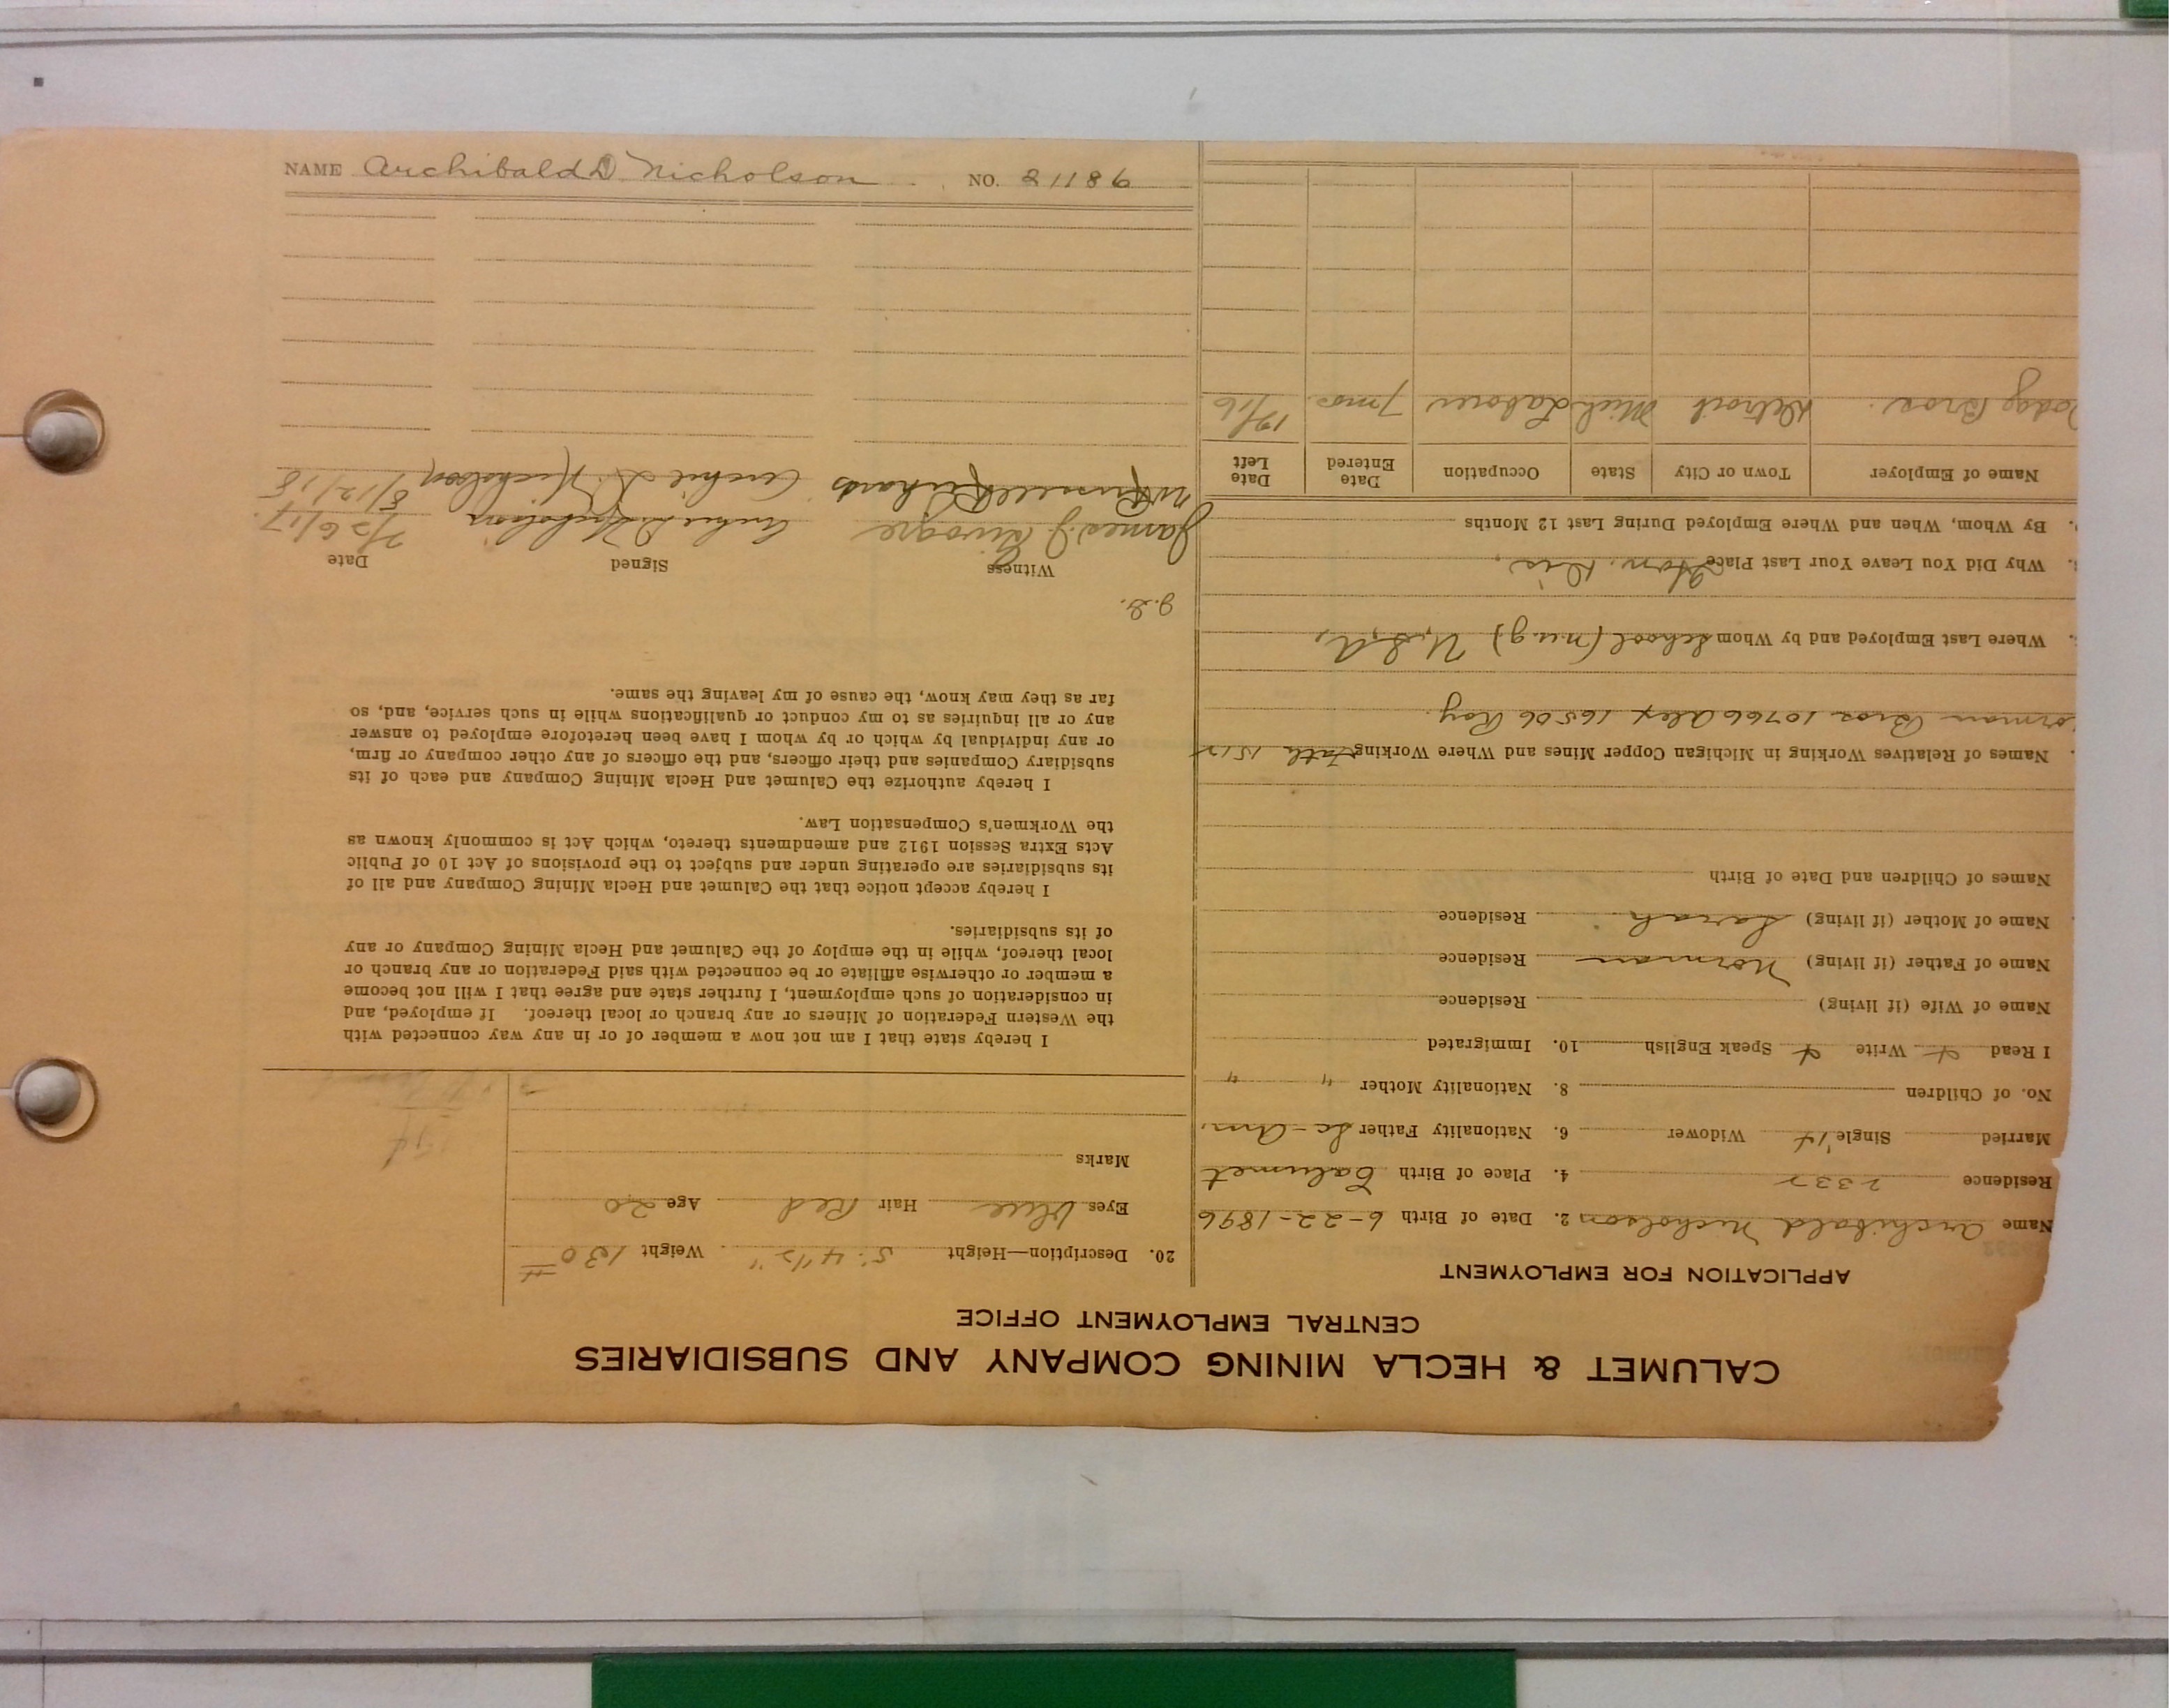 CALUMET & HECLA MINING COMPANY AND SUBSIDIARIES
CENTRAL EMPLOYMENT OFFICE
APPLICATION FOR EMPLOYMENT
Name Archibald Nicholson 2. Date of Birth 6-22-1896
Residence 2337 4. Place of Birth Calumet
Married Single Widower 6. Nationality Father Sc-Am.
No. of Children 8. Nationality Mother " "
I Read Write Speak English 10. Immigrated
Name of Wife (if living) Residence
Name of Father (if living) Norman Residence
Name of Mother (if living) Sarah Residence
Names of Children and Date of Birth
Names of Relatives Working in Michigan Copper Mines and Where Working
orman Bros 10766 Alex 16506 Roy.
Where Last Employed and by Whom School (n.u.g) U.S.A.
Why Did You Leave Your Last Place Hon. Dis.
By Whom, When and Where Employed During Last 12 Months
Name of Employer Town or City State Occupation Date Entered Date Left
odge Bros. Detroit Mich Laborer 7 mos. 12/16
20. Description—Height 5' 4 1/2" Weight 130 #
Eyes blue Hair Red Age 20
Marks
I hereby state that I am not now a member of or in any way connected with
the Western Federation of Miners or any branch or local thereof. If employed, and
in consideration of such employment, I further state and agree that I will not become
a member or otherwise affiliate or be connected with said Federation or any branch or
local thereof, while in the employ of the Calumet and Hecla Mining Company or any
of its subsidiaries.
I hereby accept notice that the Calumet and Hecla Mining Company and all of
its subsidiaries are operating under and subject to the provisions of Act 10 of Public
Acts Extra Session 1912 and amendments thereto, which Act is commonly known as
the Workmen's Compensation Law.
I hereby authorize the Calumet and Hecla Mining Company and each of its
subsidiary Companies and their officers, and the officers of any other company or firm,
or any individual by which or by whom I have been heretofore employed to answer
any or all inquiries as to my conduct or qualifications while in such service, and, so
far as they may know, the cause of my leaving the same.
Witness Signed Date
James J. Archie D. Nicholson 7/26/17.
Archie D. Nicholson 8/12/18
NAME Archibald D Nicholson NO. 21186